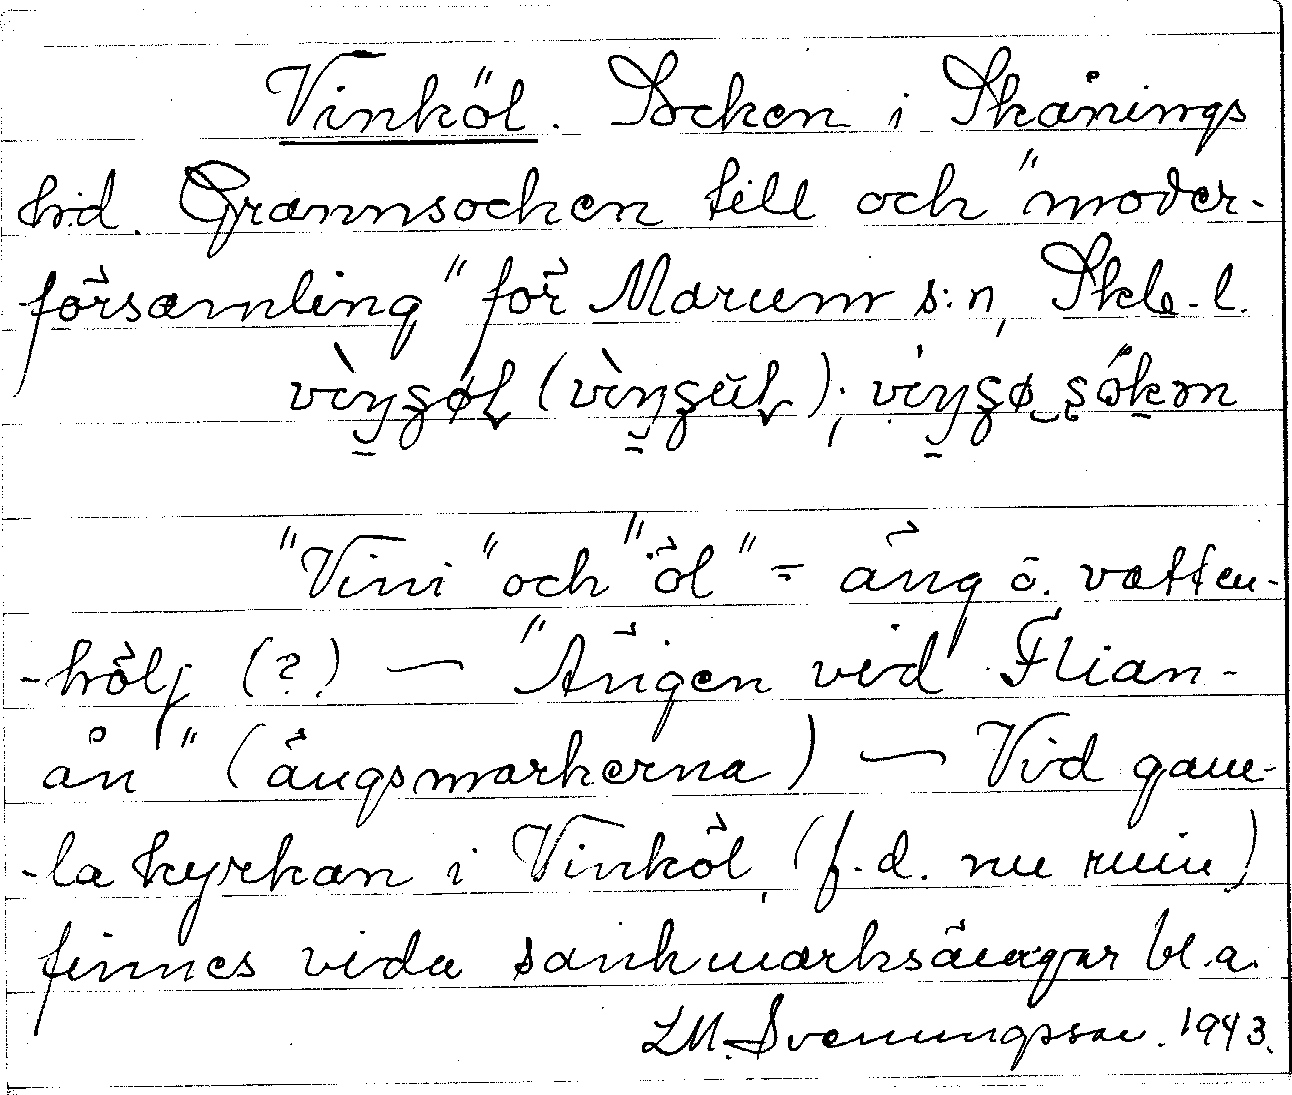 Vinköl. Socken i Skånings
hd. Grannsocken till och "moder-
församling" för Marum s:n, Skb-l.
"Vini" och "öl" = äng o. vatten-
-hölj (?) — "Ängen vid Flian-
ån" (ängsmarkerna) — Vid gam-
-la kyrkan i Vinköl, (f.d. nu ruin)
finnes vida sankmarksängar bl.a.
L.M. Svenungsson. 1943.